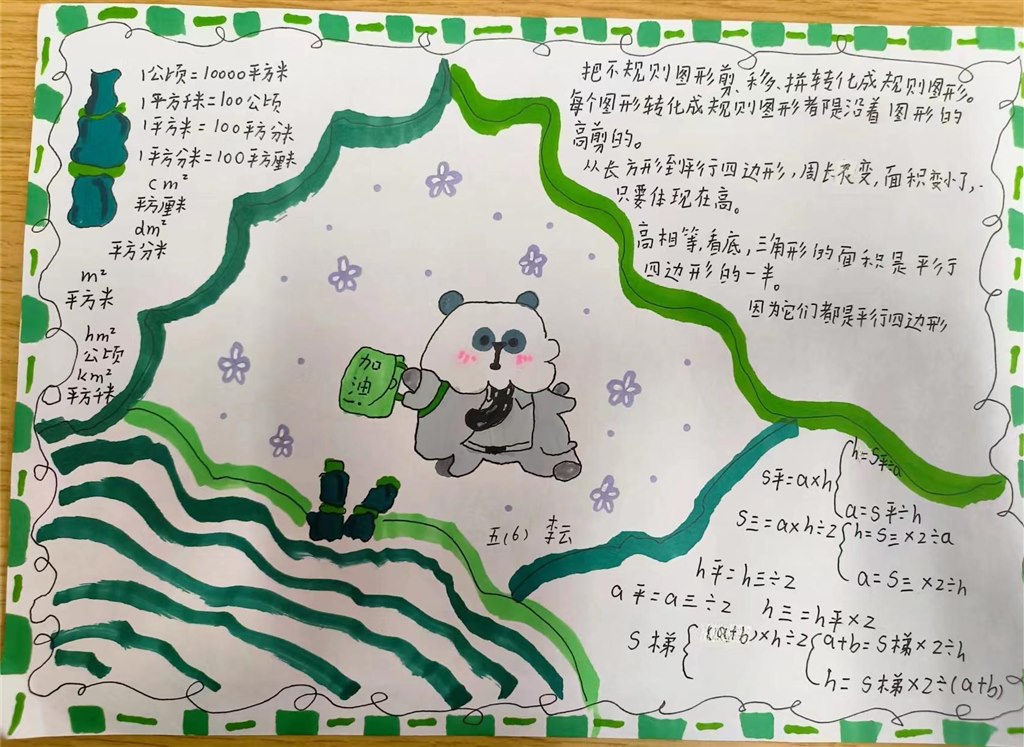 1公顷=10000平方米
1平方千米=100公顷
1平方米=100平方分米
1平方分米=100平方厘米
cm²
平方厘米
dm²
平方分米
m²
平方米
hm²
公顷
km²
平方千米
把不规则图形剪、移、拼转化成规则图形。
每个图形转化成规则图形都是沿着图形的
高剪的。
从长方形到平行四边形,周长不变,面积变小了,
只要体现在高。
高相等,看底,三角形的面积是平行
四边形的一半。
因为它们都是平行四边形
加
油
五(6) 李云
S平=a×h
h=S平÷a
a=S平÷h
S三=a×h÷2
h=S三×2÷a
a=S三×2÷h
h平=h三÷2
a平=a三÷2
h三=h平×2
S梯
(a+b)×h÷2
a+b=S梯×2÷h
h=S梯×2÷(a+b)